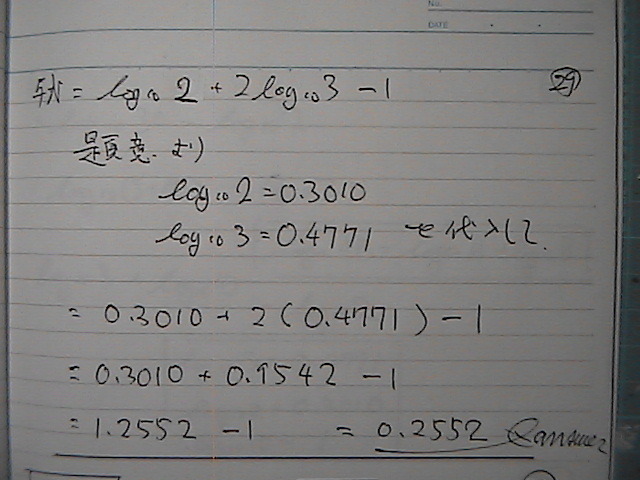 NO.
DATE
与式 = log₁₀ 2 + 2 log₁₀ 3 - 1 ㉙
題意より
log₁₀ 2 = 0.3010
log₁₀ 3 = 0.4771 を代入して.
= 0.3010 + 2 ( 0.4771 ) - 1
= 0.3010 + 0.9542 - 1
= 1.2552 - 1 = 0.2552 answer